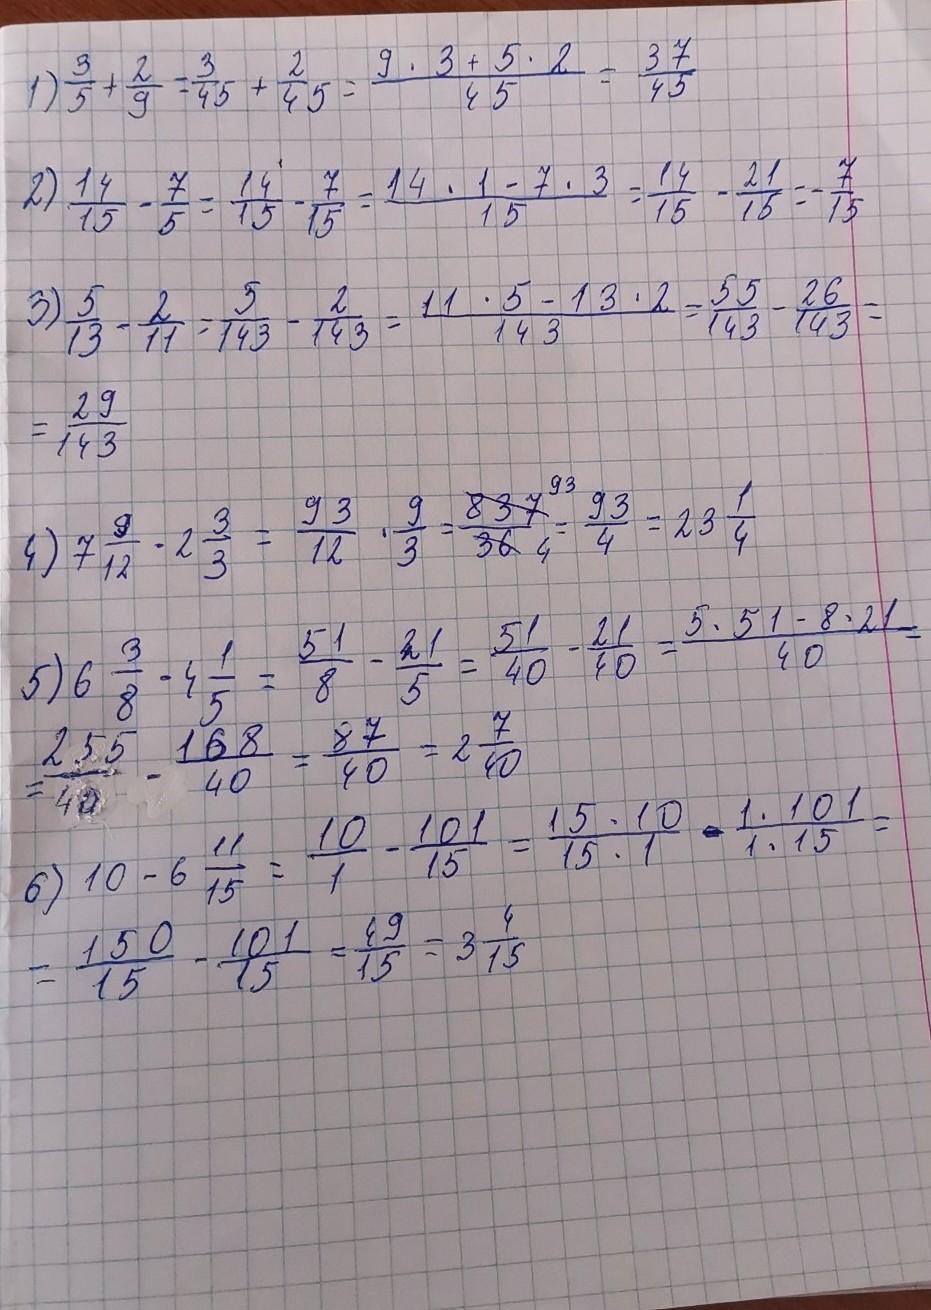 1) 3/5 + 2/9 = 3/45 + 2/45 = 9 · 3 + 5 · 2 / 45 = 37/45
2) 14/15 - 7/5 = 14/15 - 7/15 = 14 · 1 - 7 · 3 / 15 = 14/15 - 21/15 = - 7/15
3) 5/13 - 2/11 = 5/143 - 2/143 = 11 · 5 - 13 · 2 / 143 = 55/143 - 26/143 =
= 29/143
4) 7 9/12 · 2 3/3 = 93/12 · 9/3 = 837/36 93 4 = 93/4 = 23 1/4
5) 6 3/8 - 4 1/5 = 51/8 - 21/5 = 51/40 - 21/40 = 5 · 51 - 8 · 21 / 40 =
= 255/40 - 168/40 = 87/40 = 2 7/40
6) 10 - 6 11/15 = 10/1 - 101/15 = 15 · 10 / 15 · 1 - 1 · 101 / 1 · 15 =
= 150/15 - 101/15 = 49/15 = 3 4/15